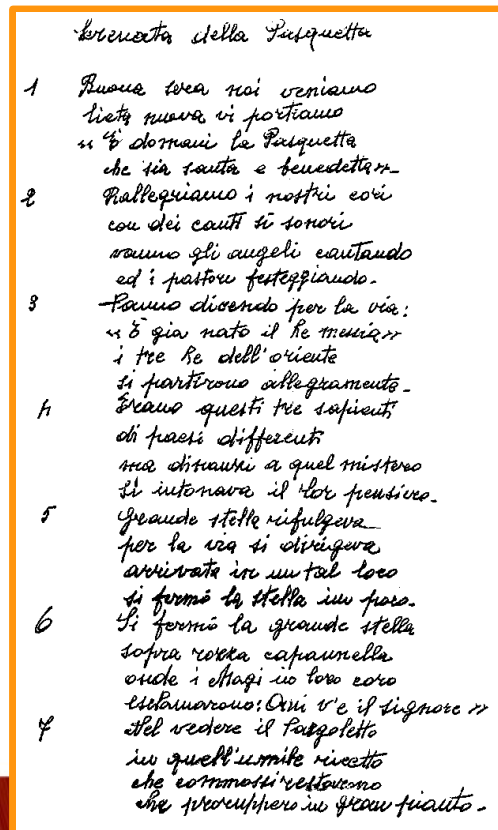 Serenata della Pasquetta
1 Buona sera noi veniamo
lieta nuova vi portiamo
« È domani la Pasquetta
che sia santa e benedetta»
2 Rallegriamo i nostri cori
con dei canti sì sonori
vanno gli angeli cantando
ed i pastori festeggiando.
3 Vanno dicendo per la via:
« È già nato il Re messia»
i tre Re dell'oriente
si partirono allegramente.
4 Erano questi tre sapienti
di paesi differenti
ma dinanzi a quel mistero
si intonava il lor pensiero.
5 Grande stella rifulgeva
per la via si dirigeva
arrivata in un tal loco
si fermò la stella un poco.
6 Si fermò la grande stella
sopra rozza capannella
onde i Magi in loro coro
esclamarono: Qui v'è il signore »
7 Nel vedere il Pargoletto
in quell'umile ricetto
che commossi restarono
che proruppero in gran pianto.